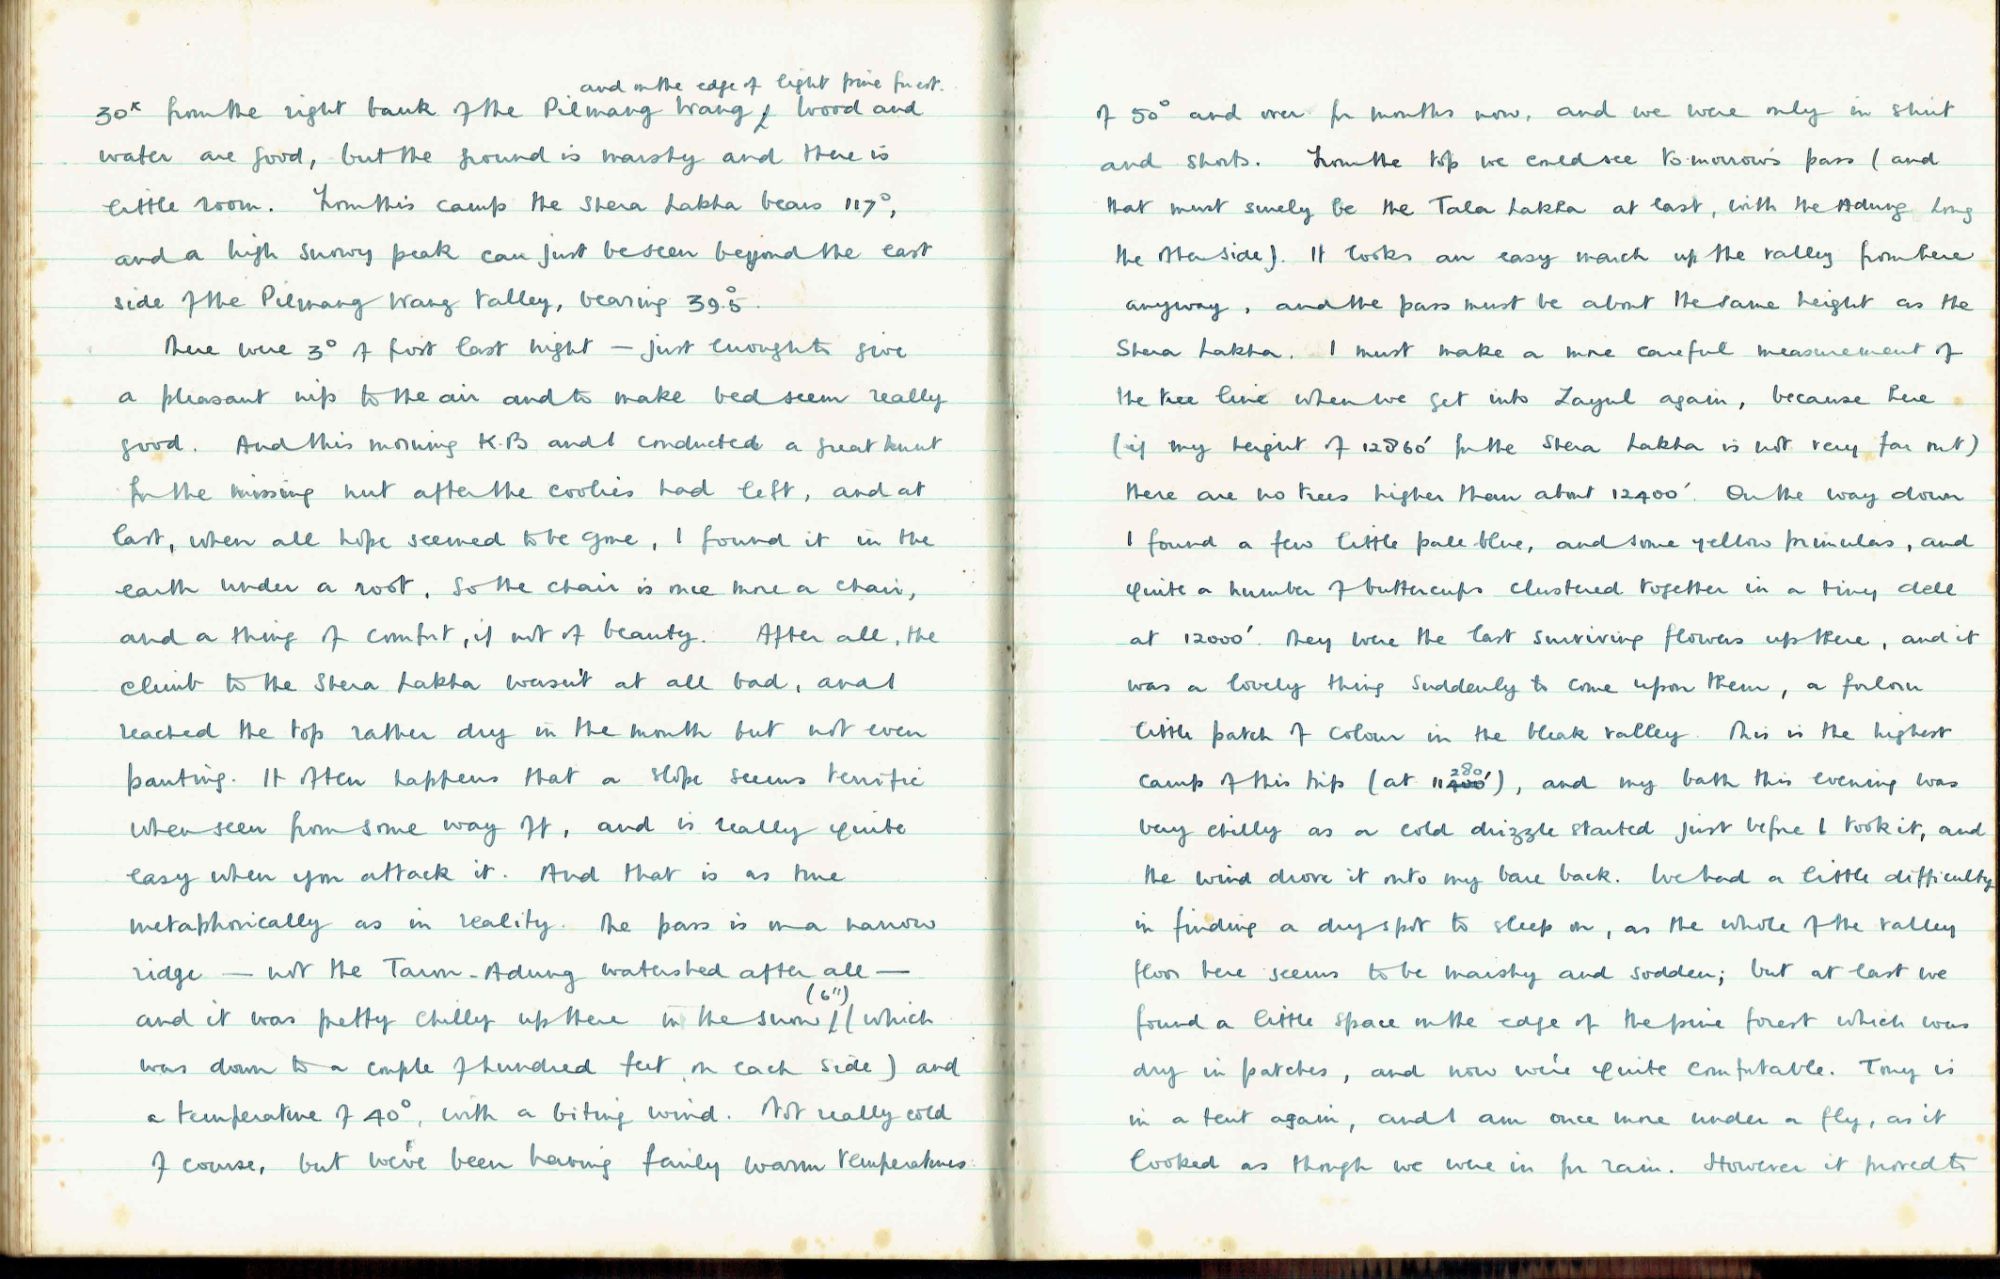 and on the edge of light pine forest.
30x from the right bank of the Pilmang Wang, Wood and
water are good, but the ground is marshy and there is
little room. From this camp the Shera Lakha bears 117°,
and a high snowy peak can just be seen beyond the east
side of the Pilmang Wang valley, bearing 39.5°.
There were 3° of frost last night – just enough to give
a pleasant nip to the air and to make bed seem really
good. And this morning K.B and I conducted a great hunt
for the missing nut after the coolies had left, and at
last, when all hope seemed to be gone, I found it in the
earth under a root. So the chair is once more a chair,
and a thing of comfort, if not of beauty. After all, the
climb to the Shera Lakha wasn't at all bad, and I
reached the top rather dry in the mouth but not even
panting. It often happens that a slope seems terrific
when seen from some way off, and is really quite
easy when you attack it. And that is as true
metaphorically as in reality. The pass is on a narrow
ridge – not the Taron-Adung watershed after all –
and it was pretty chilly up there in the snow (6") (which
was down to a couple of hundred feet on each side) and
a temperature of 40°, with a biting wind. Not really cold
of course, but we've been having fairly warm temperatures
of 50° and over for months now, and we were only in shirt
and shorts. From the top we could see to-morrow's pass (and
that must surely be the Tala Lakha at last, with the Adung Long
the other side). It looks an easy march up the valley from here
anyway, and the pass must be about the same height as the
Shera Lakha. I must make a more careful measurement of
the tree line when we get into Zayul again, because here
(if my height of 12860' for the Shera Lakha is not very far out)
there are no trees higher than about 12400'. On the way down
I found a few little pale blue, and some yellow primulas, and
quite a number of buttercups clustered together in a tiny dell
at 12000'. They were the last surviving flowers up there, and it
was a lovely thing suddenly to come upon them, a forlorn
little patch of colour in the bleak valley. This is the highest
camp of this trip (at 11280'), and my bath this evening was
very chilly as a cold drizzle started just before I took it, and
the wind drove it onto my bare back. We had a little difficulty
in finding a dry spot to sleep on, as the whole of the valley
floor here seems to be marshy and sodden; but at last we
found a little space on the edge of the pine forest which was
dry in patches, and now we're quite comfortable. Tony is
in a tent again, and I am once more under a fly, as it
looked as though we were in for rain. However it proved to